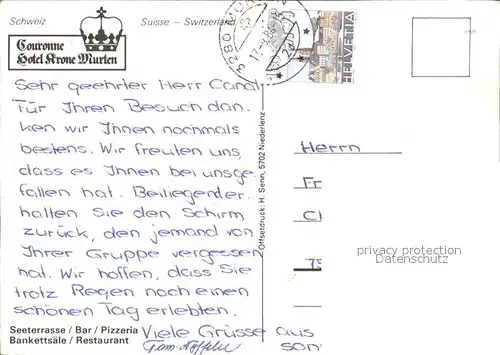 Schweiz Suisse – Switzerland
Couronne
Hotel Krone Murten
3280
HELVETIA
Sehr geehrter Herr Canal
Für Ihren Besuch dan-
ken wir Ihnen nochmals
bestens. Wir freuten uns,
dass es Ihnen bei uns ge-
fallen hat. Beiliegender-
halten Sie den Schirm
zurück, den jemand von
Ihrer Gruppe vergessen
hat. Wir hoffen, dass Sie
trotz Regen noch einen
schönen Tag erlebten.
Viele Grüsse aus
Seeterrasse / Bar / Pizzeria
Bankettsäle / Restaurant
Offsetdruck: H. Senn, 5702 Niederlenz
Herrn
Fr
privacy protection
Datenschutz